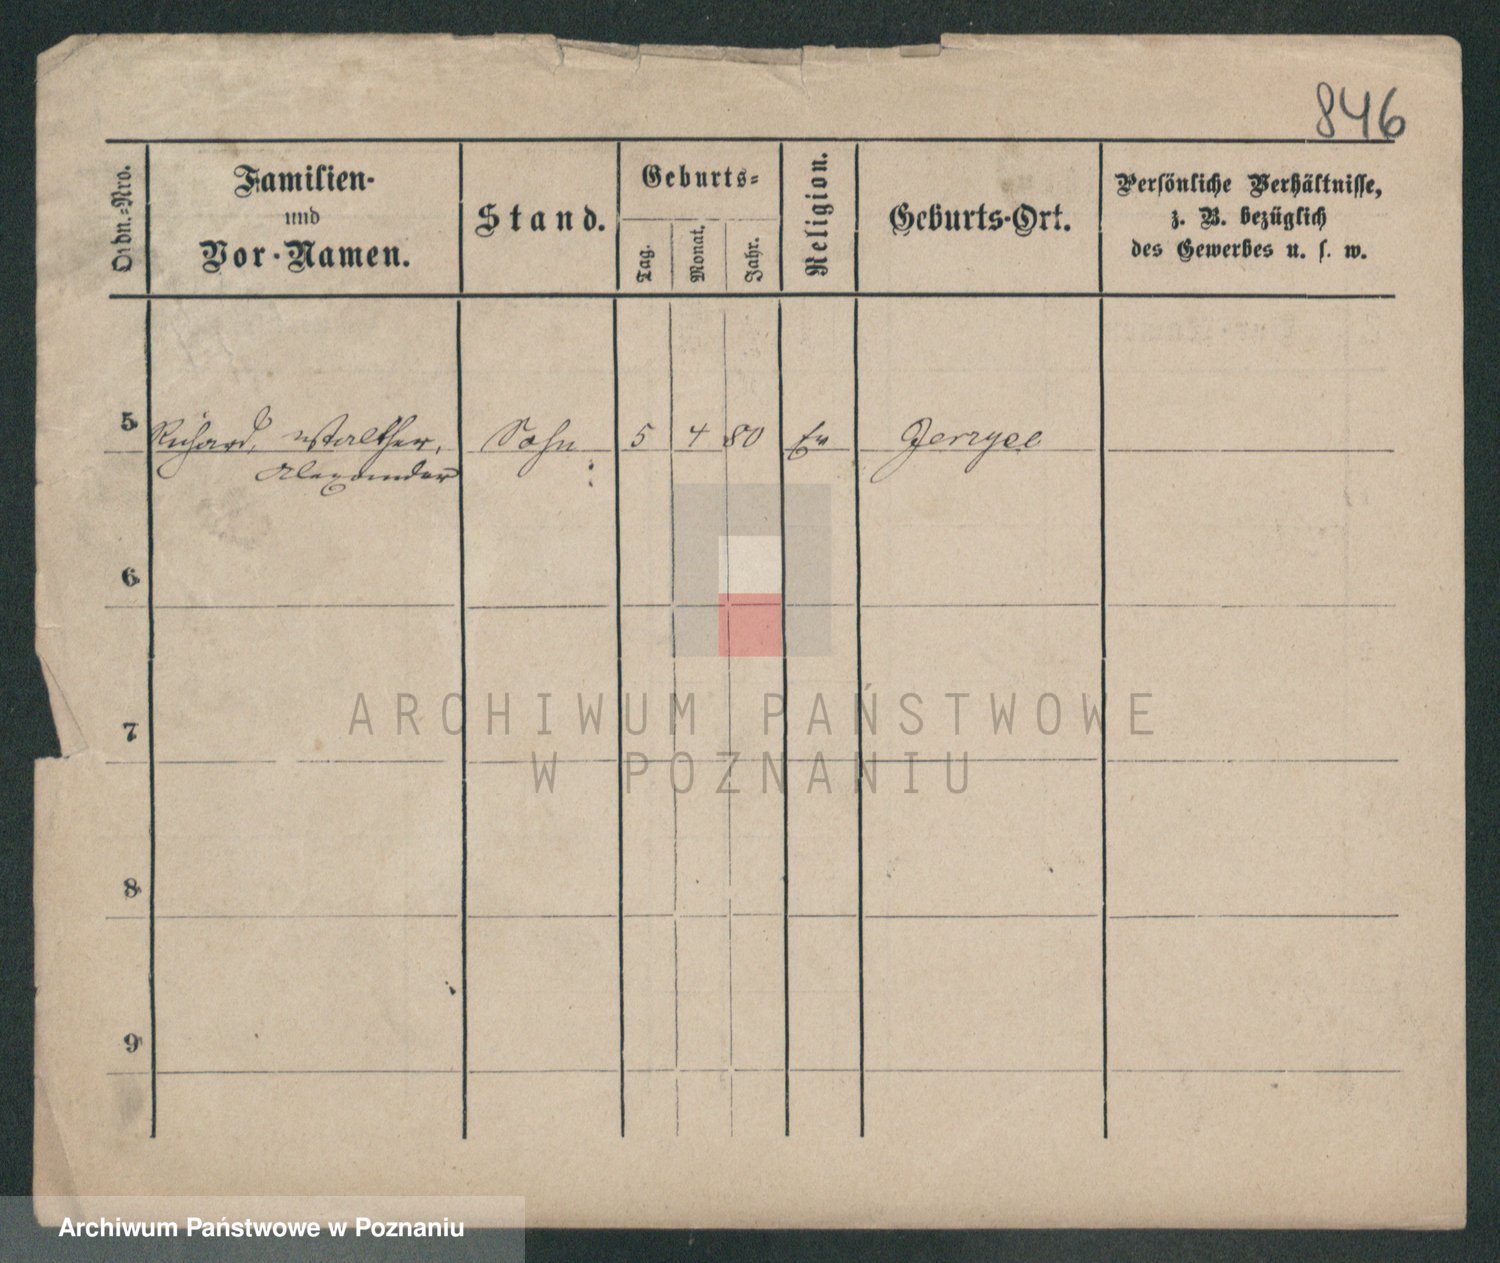 846
Ordn.-Nro.
Familien-
und
Vor-Namen.
Stand.
Geburts-
Tag.
Monat.
Jahr.
Religion.
Geburts-Ort.
Persönliche Verhältnisse,
z. B. bezüglich
des Gewerbes u. s. w.
5 Richard, Walther, Sohn 5 4 80 Ev
Alexander
6
7
8
9
ARCHIWUM PAŃSTWOWE
W POZNANIU
Archiwum Państwowe w Poznaniu